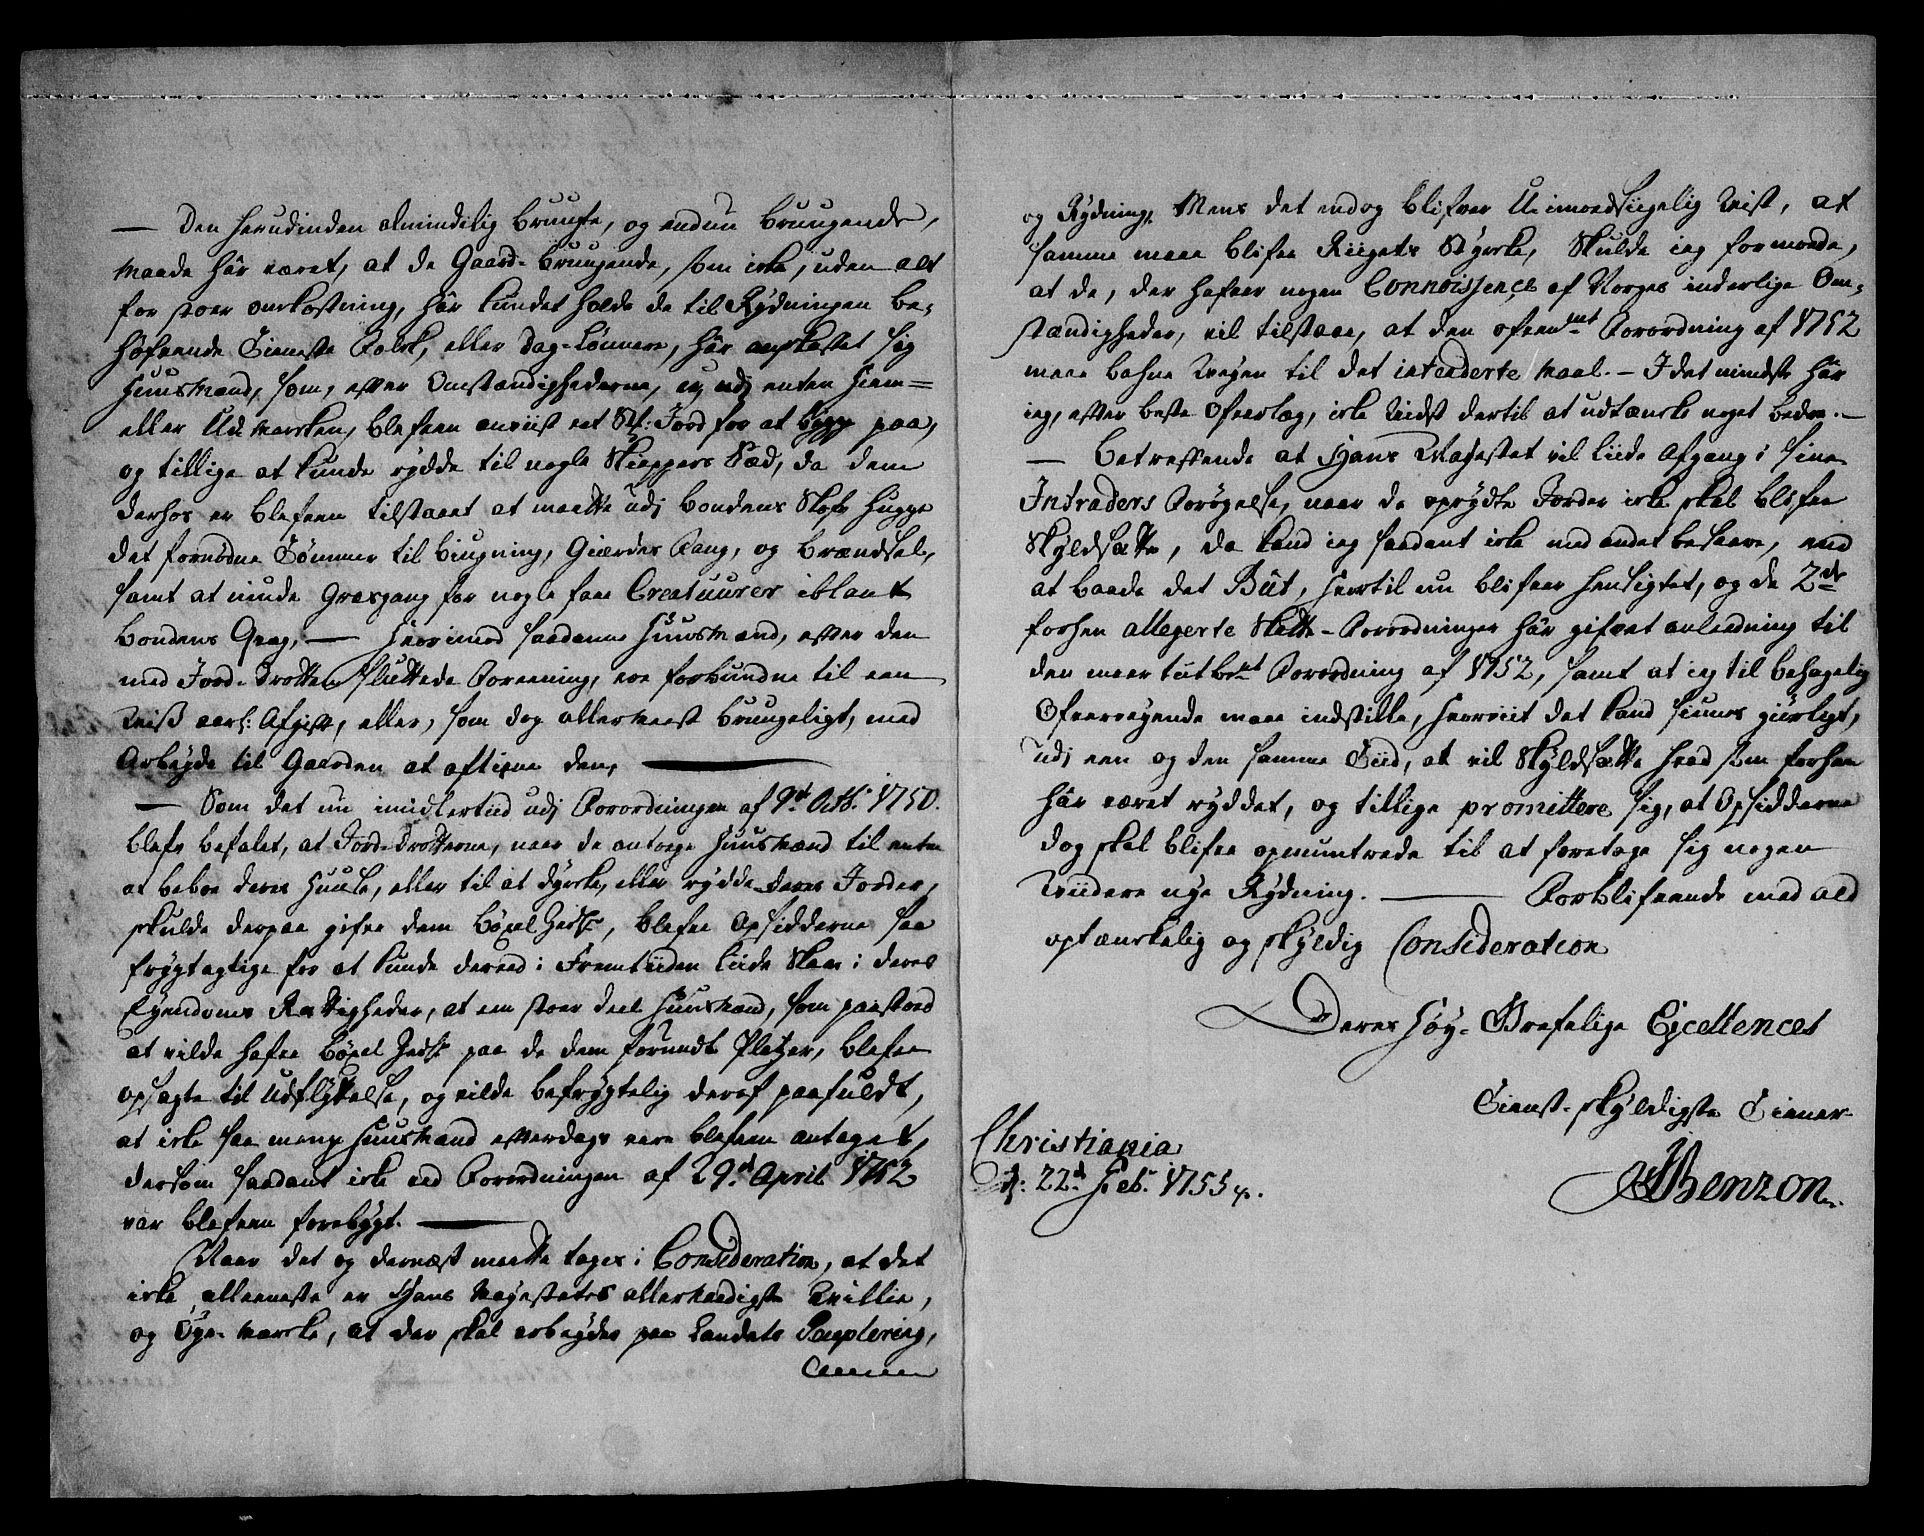 — Den herudinden almindelig bruugte, og endnu bruugende,
Maade hâr været, at de Gaard-bruugende, som icke, uden alt
for stoer omkostning, hâr kundet holde de til Rydningen be-
höfvende Tieneste Folck, eller Dag-Lönnere, hâr anskaffet sig
Huusmænd, som, efter Omstændighederne, udj enten Hiem-
eller Udmarcken, blefven anviist eet Stk: Jord for at bygge paa,
og tillige at kunde rydde til nogle Skieppers Sæd, da dem
derhos er blefven tilstaaet at maatte udj Bondens Skofv hugge
det fornödne Tömmer til Biugning, Gierdes Fang, og Brændsel,
samt at niude Græsgang for nogle faae Creatuurer iblant
Bondens Qvæg, — Hvorimod saadanne Huusmænd, efter den
med Jord-Drotten sluttede Foreening, ere forbundne til een
Viss aarl: Afgift, eller, som dog allermeest bruugeligt, med
Arbeyde til Gaarden at aftiene den, —
— Som det nu imidlertiid udj Forordningen af 9.de Octb: 1750.
blefv befalet, at Jord-Drotterne, naar de antoge Huusmænd til enten
at beboe deres Huuse, eller til at dyrcke, eller rydde deres Jorder,
skulde derpaa gifve dem böxel Sedle, blefve Opsidderne saa
frygtagtige for at kunde derved i Fremtiiden liide Skaar i deres
Eyendoms Rættigheder, at een stoer deel Huusmænd, som paastoed
at vilde hafve böxel Sedle paa de dem forundte Pladzer, blefve
opsagte til udflyttelse, og vilde befrygtelig deraf paafuldt,
at icke saa mange Huusmænd efterdags vare blefven antaget,
dersom saadant icke ved Forordningen af 29.de April 1752
var blefven forebygt. —
Naar det og dernæst maatte tages i Consideration, at det
icke alleeneste er Hans Mayestætes allernaadigste Villie,
og Öye-mærcke, at der skal arbeydes paa Landets Peuplering,
og Rydning, Mens det endog blifver Uimodsiigelig Vist, at
samme maae blifve Riigets Styrcke, Skulde ieg formoode,
at de, der hafver nogen Connoissence af Norges inderlige Om-
stændigheder, vil tilstaae, at den ofven.mt Forordning af 1752
maae bahne Veyen til det intenderte Maal. — I det mindste hâr
ieg, efter beste Ofverlæg, icke vidst dertil at udtæncke noget bedre. —
— Betreffende at Hans Mayestet vil liide Afgang i sine
Intraders Forögelse, naar de oprydte Jorder icke skal blifve
Skyldsatte, da kand ieg saadant icke med andet besvare, end
at baade det Büt, hvortil nu blifver hensigtet, og de 2.de
forhen allegerte Skatte-Forordninger hâr gifvet anledning til
den meer titbe.mt Forordning af 1752, samt at ieg til behagelig
Ofverveyende maae indstille, hvorviit det kand siunes giörligt,
udj een og den samme Tiid, at vil Skyldsætte hvad som forhen
hâr været ryddet, og tillige promittere sig, at Opsidderne
dog skal blifve opmuntrede til at foretage sig nogen
Viidere nye Rydning. — Forblifvende med ald
optænckelig og skyldig Consideration
Deres Höy-Grefvelige Excellences
Tienst-skyldigste Tiener
Christiania
d: 22.d Feb: 1755.
Benzon